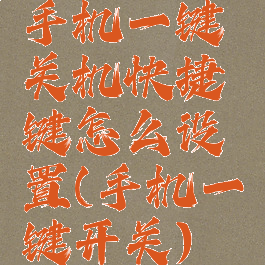 手机一键
关机快捷
键怎么设
置(手机一
键开关)